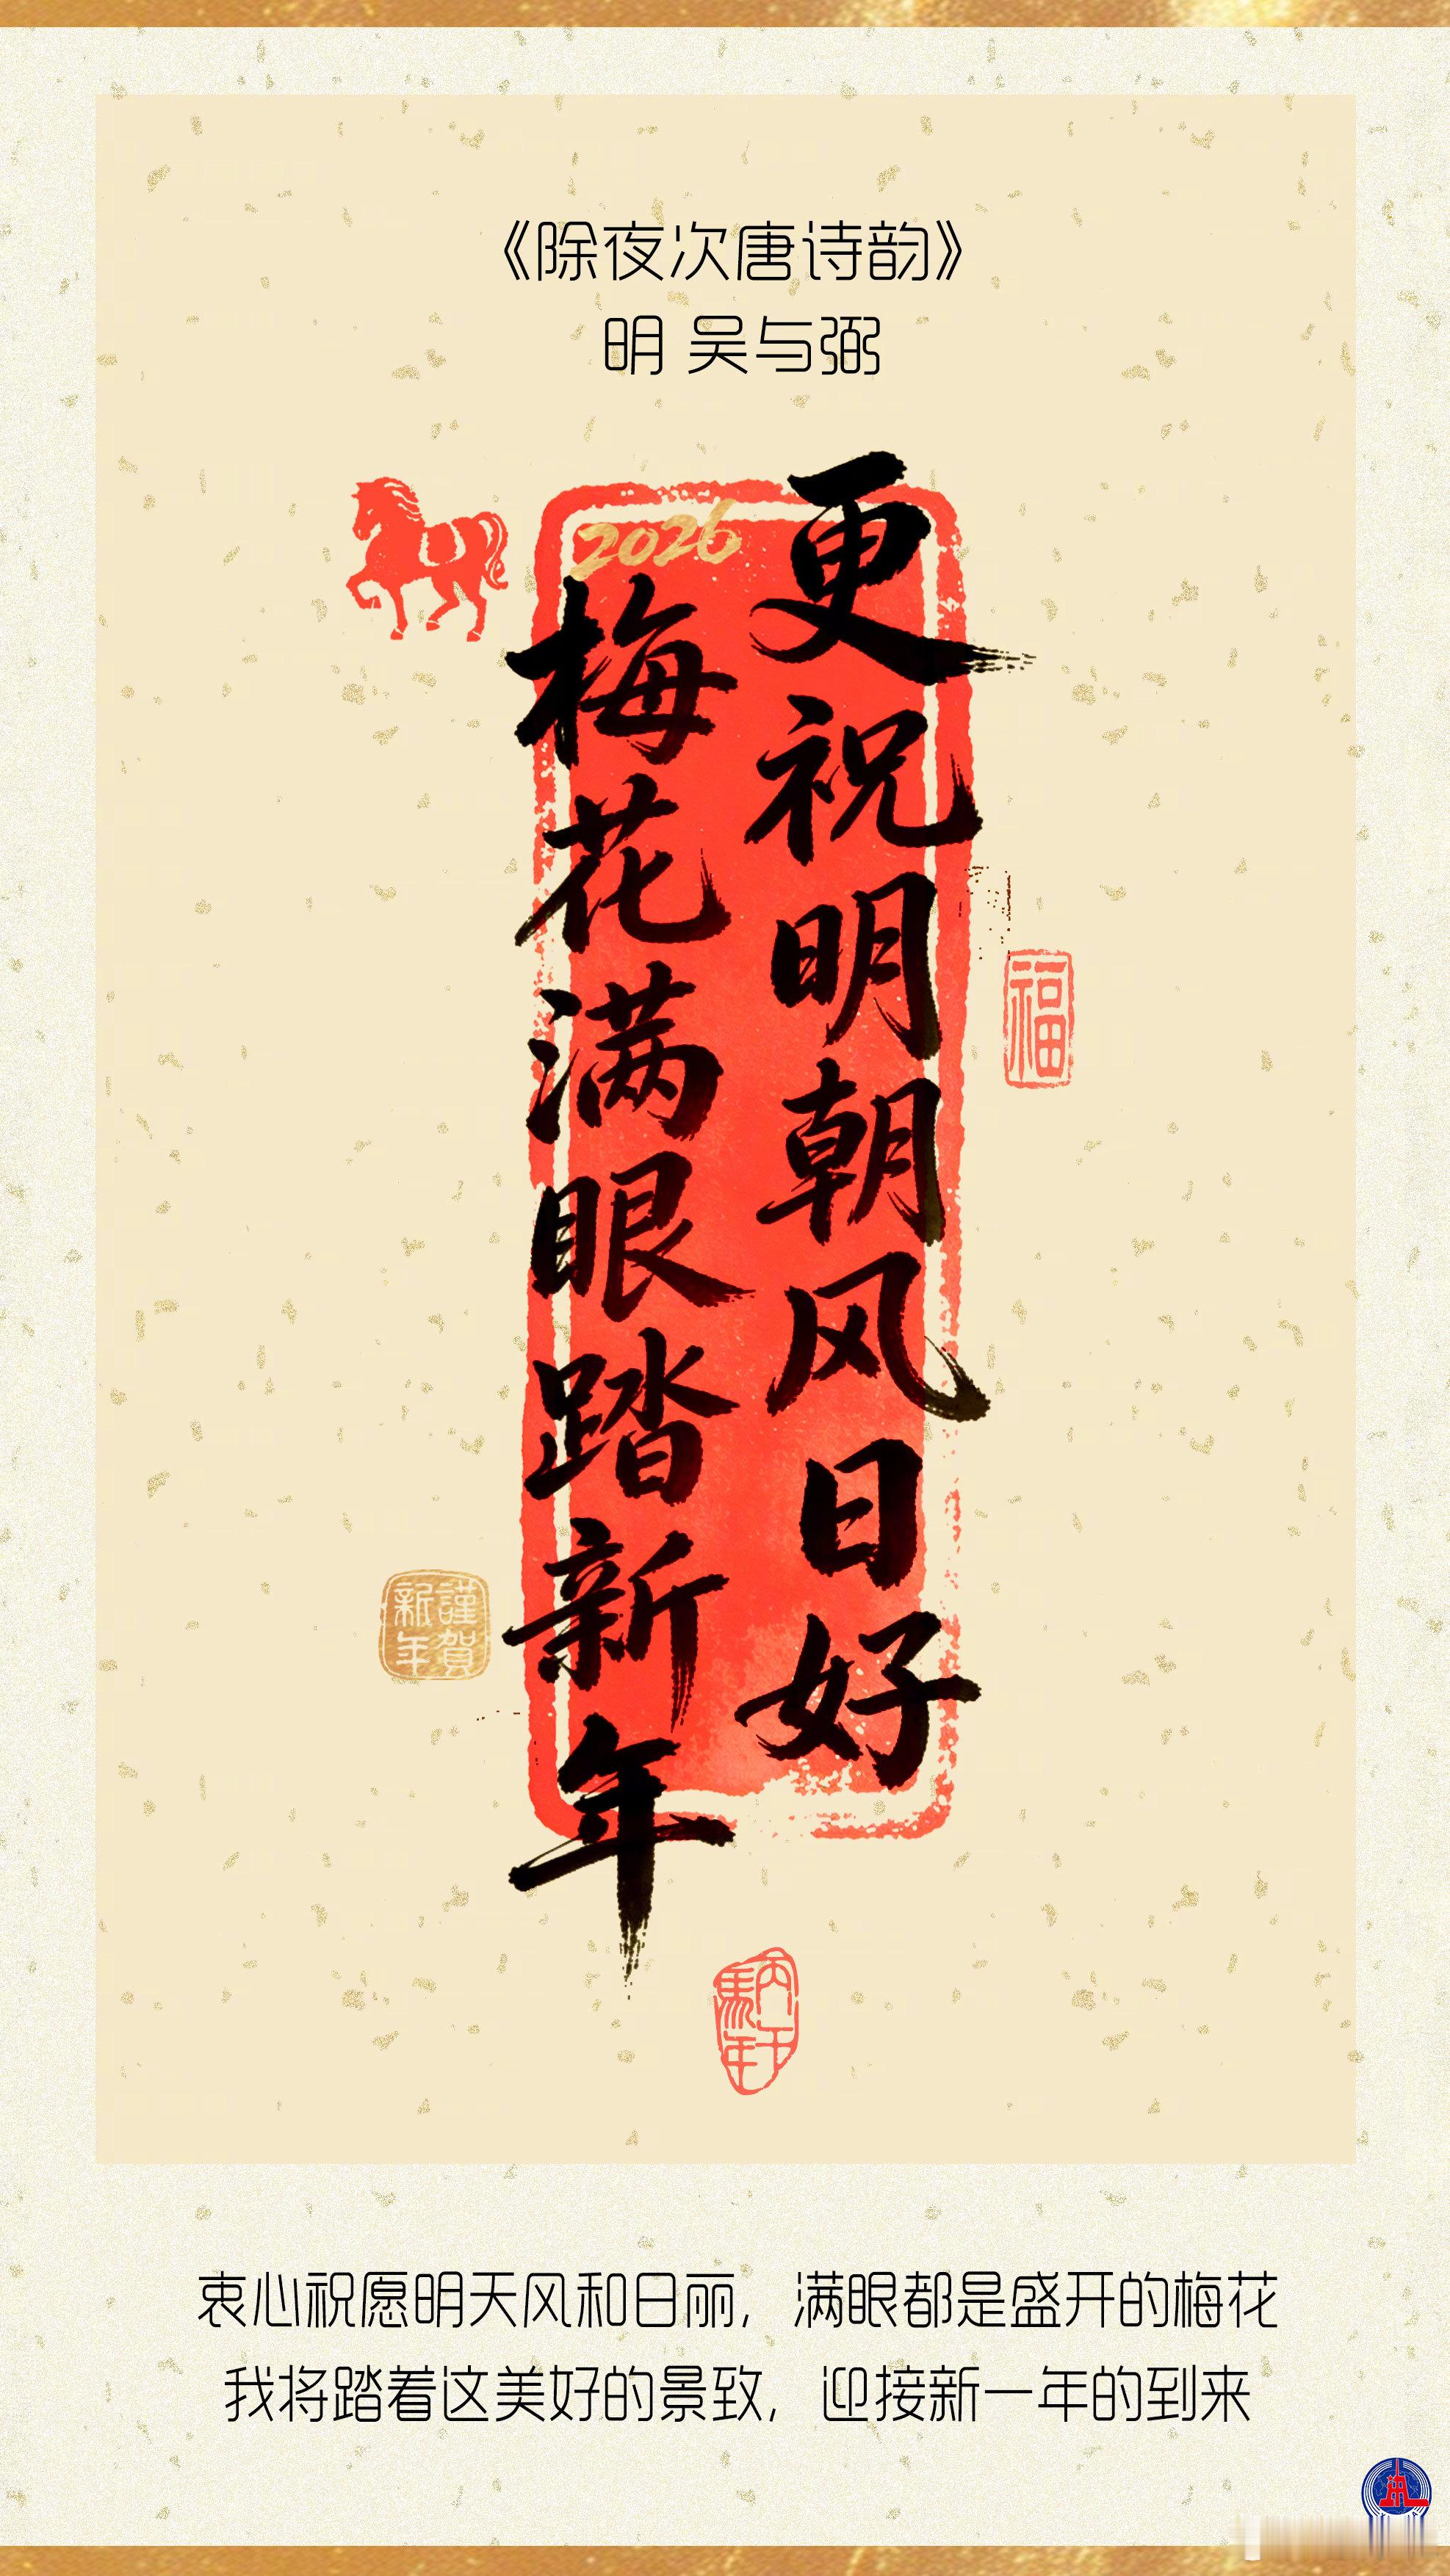 《除夜次唐诗韵》
明 吴与弼
2026
更祝明朝风日好
梅花满眼踏新年
福
謹賀
新年
丙午
馬年
衷心祝愿明天风和日丽，满眼都是盛开的梅花
我将踏着这美好的景致，迎接新一年的到来